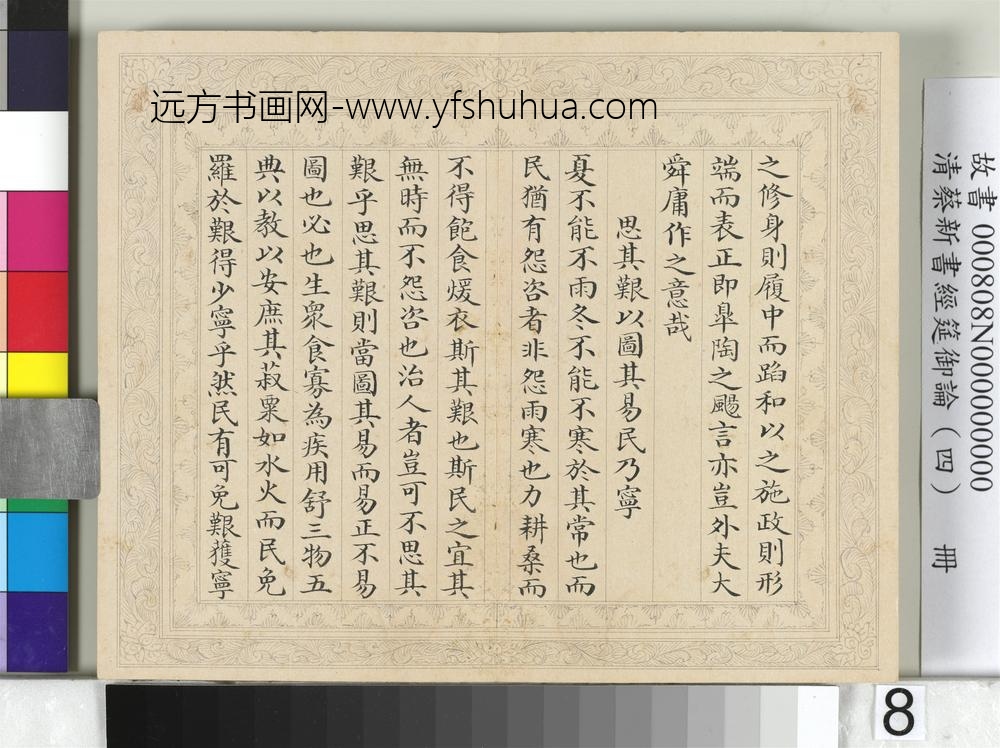 远方书画网-www.yfshuhua.com
之修身則履中而蹈和以之施政則形
端而表正即臯陶之颺言亦豈外夫大
舜庸作之意哉
思其艱以圖其易民乃寧
夏不能不雨冬不能不寒於其常也而
民猶有怨咨者非怨雨寒也力耕桑而
不得飽食煖衣斯其艱也斯民之宜其
無時而不怨咨也治人者豈可不思其
艱乎思其艱則當圖其易而易正不易
圖也必也生眾食寡為疾用舒三物五
典以教以安庶其菽粟如水火而民免
罹於艱得少寧乎然民有可免艱獲寧
故書 000808N000000000
清蔡新書經筵御論（四） 冊
8